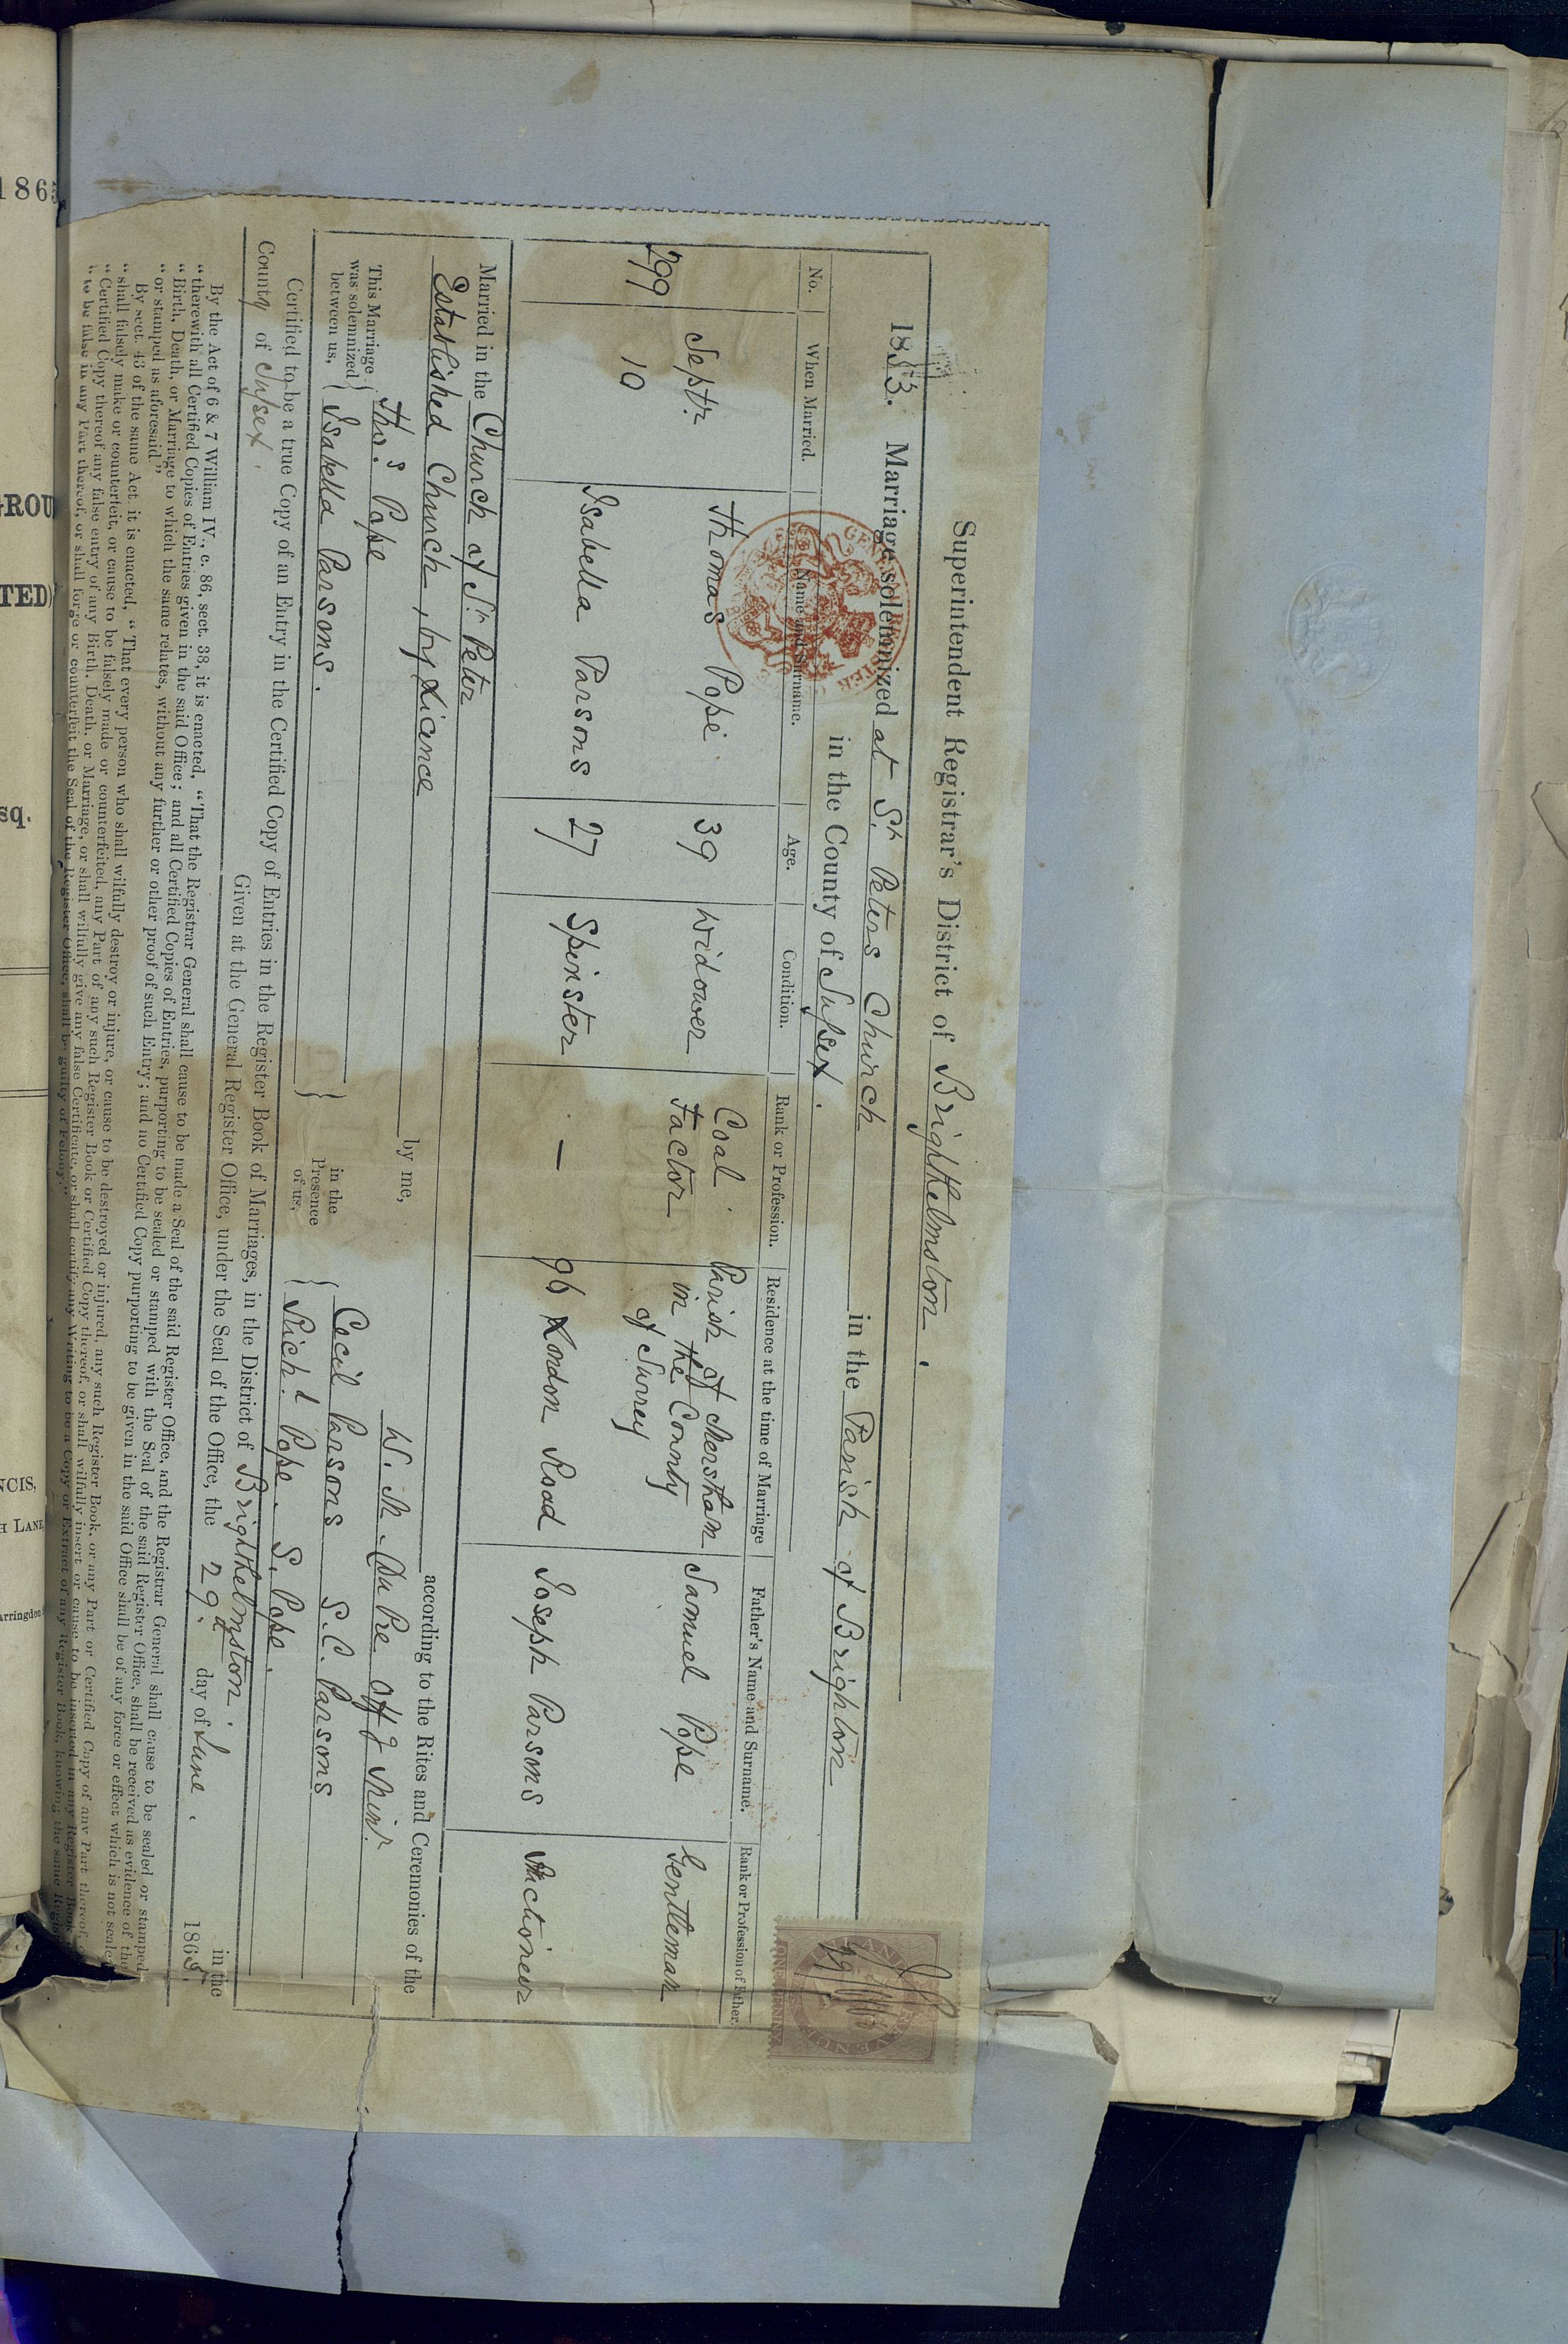 Superintendent Registrar's District of Brighthelmston.
1853. Marriage solemnized at St Peters Church in the Parish of Brighton
in the County of Sussex.
No. When Married. Name and Surname. Age. Condition. Rank or Profession. Residence at the time of Marriage Father's Name and Surname. Rank or Profession of Father.
299 Septr 10 Thomas Pope 39 Widower Coal Factor Parish of Merstham in the County of Surrey Samuel Pope Gentleman
Isabella Parsons 27 Spinster — 96 London Road Joseph Parsons Auctioneer
Married in the Church of St Peter according to the Rites and Ceremonies of the
Established Church, by Licence by me, W. M. Du Pre Offg Minr
This Marriage was solemnized between us, { Thos Pope
Isabella Parsons. } in the Presence of us, { Cecil Parsons S. C. Parsons
Richd Pope. S. Pope.
Certified to be a true Copy of an Entry in the Certified Copy of Entries in the Register Book of Marriages, in the District of Brighthelmston. in the
County of Sussex. Given at the General Register Office, under the Seal of the Office, the 29th day of June. 1865.
By the Act of 6 & 7 William IV., c. 86, sect. 38, it is enacted, "That the Registrar General shall cause to be made a Seal of the said Register Office, and the Registrar General shall cause to be sealed or stamped
"therewith all Certified Copies of Entries given in the said Office; and all Certified Copies of Entries, purporting to be sealed or stamped with the Seal of the said Register Office, shall be received as evidence of the
"Birth, Death, or Marriage to which the same relates, without any further or other proof of such Entry; and no Certified Copy purporting to be given in the said Office shall be of any force or effect which is not sealed
"or stamped as aforesaid."
By sect. 43 of the same Act, it is enacted, "That every person who shall wilfully destroy or injure, or cause to be destroyed or injured, any such Register Book, or any Part or Certified Copy of any Part thereof, or
"shall falsely make or counterfeit, or cause to be falsely made or counterfeited, any Part of any such Register Book or Certified Copy thereof, or shall wilfully insert or cause to be inserted in any Register Book
"Certified Copy thereof any false entry of any Birth, Death, or Marriage, or shall wilfully give any false Certificate, or shall certify any Writing to be a Copy or Extract of any Register Book, knowing the same Register
"to be false in any Part thereof, or shall forge or counterfeit the Seal of the Register Office, shall be guilty of Felony."
GENERAL REGISTER OFFICE
INLAND REVENUE
ONE PENNY
186
GROU
TED)
sq.
NCIS,
H LANE,
arringdon